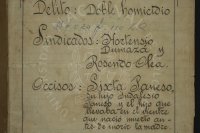 Delito: Doble homicidio
Sindicados: Hortensio
Dumaza y
Rosendo Olea
Occisos: Sixta Ranoso,
su hijo Indalesio
Ranoso y el hijo que
llevaba en el vientre
que nació muerto an-
tes de morir la madre